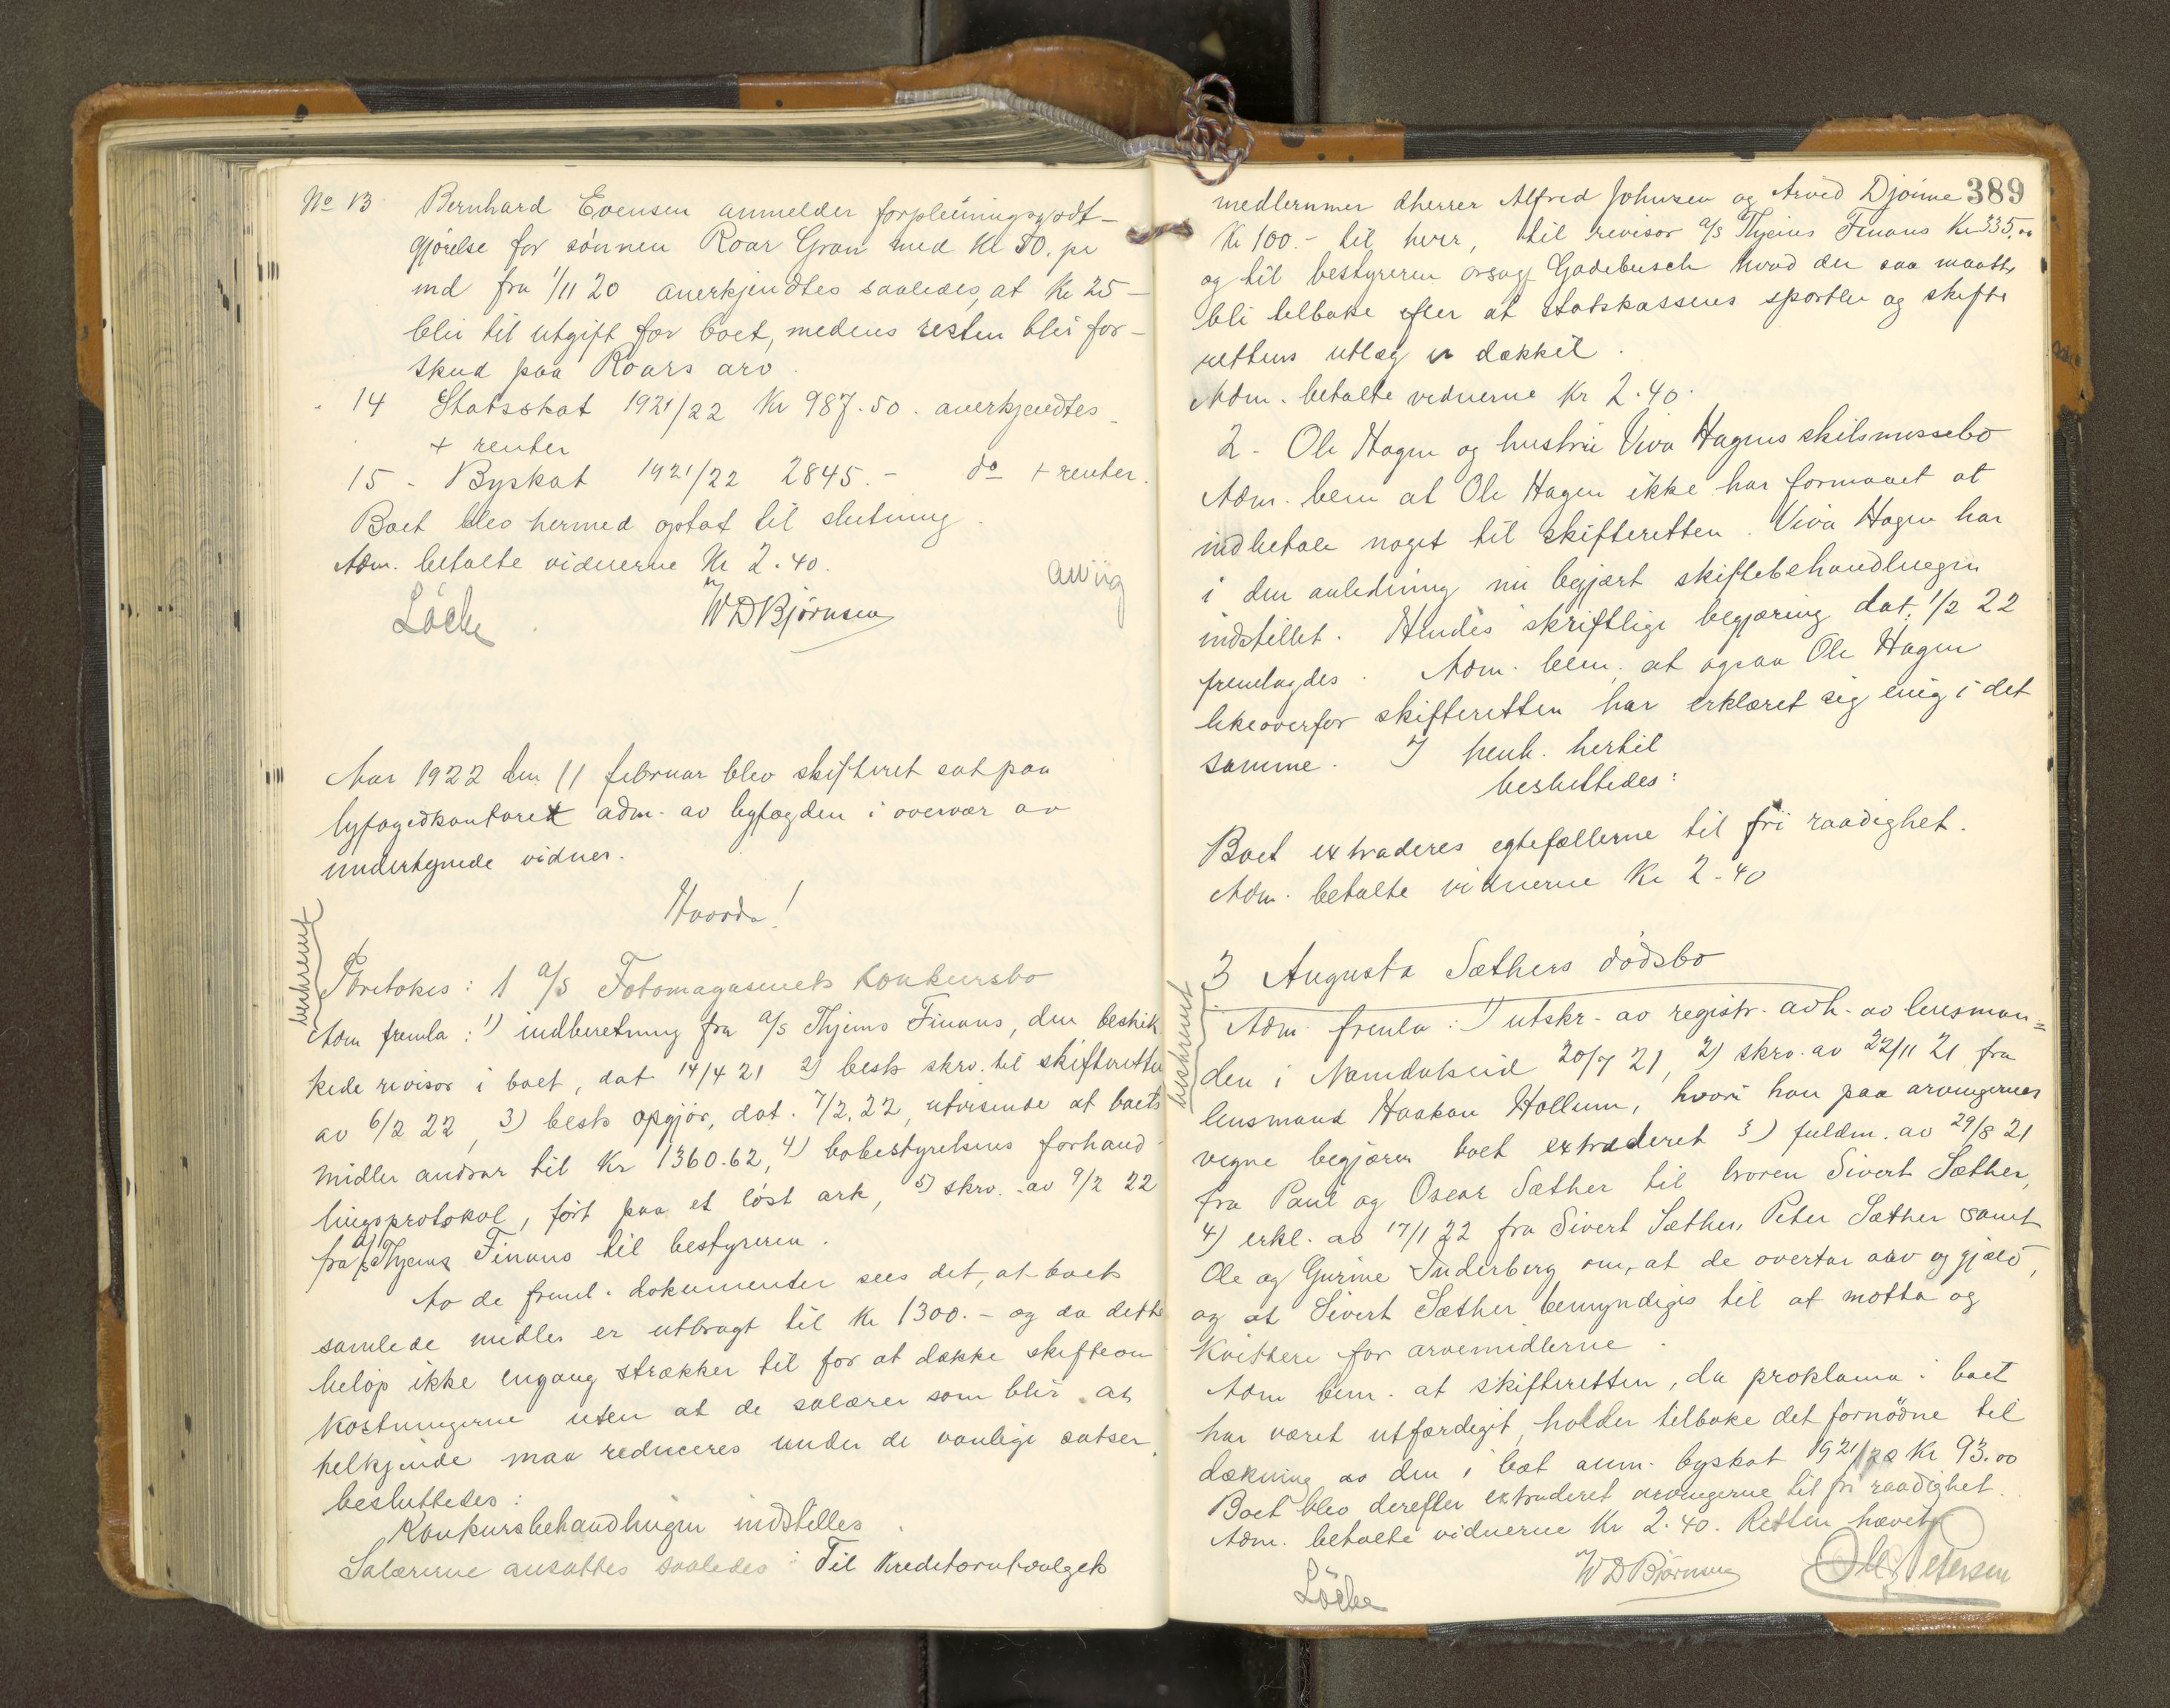 No 13 Bernhard Evensen anmelder forpleiningsgodt-
gjörelse for sönnen Roar Gran med Kr 50. pr
md fra 1/11 20 anerkjendtes saaledes, at Kr 25 –
blir til utgift for boet, medens resten blir for-
skud paa Roars arv.
14 Statsskat 1921/22 Kr 987.50. anerkjendtes
+ renter
15 - Byskat 1921/22 2845.- do + renter.
Boet blev hermed optat til slutning.
Adm. betalte vidnerne Kr 2.40.
Löcke WDBjörnsen
Aar 1922 den 11 februar blev skifteret sat paa
byfogedkontoret adm. av byfogden i overvær av
undertegnede vidner.
Hvorda!
beskrevet
Foretokes: 1 a/s Fotomagasinets konkursbo
Adm fremla: 1) indberetning fra a/s Thjems Finans, den beskik
kede revisor i boet, dat 14/4 21 2) bests skrv. til skifteretten
av 6/2 22, 3) bests opgjör, dat. 7/2.22, utvisende at boets
midler andrar til Kr 1360.62, 4) bobestyrelsens forhand-
lingsprotokol, fört paa et löst ark, 5) skrv. av 9/2 22
fra a/s Thjems Finans til bestyreren.
Av de freml. dokumenter sees det, at boets
samlede midler er utbragt til Kr 1300.- og da dette
belöp ikke engang strækker til for at dække skifteom
kostningerne uten at de salærer som blir at
tilkjende maa reduceres under de vanlige satser,
besluttedes:
Konkursbehandlingen indstilles.
Salærerne ansattes saaledes: Til Kreditorutvalgets
389
medlemmer dherrer Alfred Johnsen og Arvid Djöine
Kr 100.- til hver, til revisor a/s Thjems Finans Kr 335,00
og til bestyreren orsagf Gadebusch hvad der saa maatte
bli tilbake efter at statskassens sportler og skifte
rettens utlæg er dækket.
Adm. betalte vidnerne Kr 2.40.
2 - Ole Hagen og hustru Viva Hagens skilsmissebo
Adm. bem at Ole Hagen ikke har formaaet at
indbetale noget til skifteretten. Viva Hagen har
i den anledning nu begjært skiftebehandlingen
indstillet. Hendes skriftlige begjæring dat. 1/2 22
fremlagdes. Adm. bem. at ogsaa Ole Hagen
likeoverfor skifteretten har erklæret sig enig i det
samme. I henh. hertil
besluttedes:
Boet extraderes egtefællerne til fri raadighet.
Adm. betalte vidnerne Kr 2-40
3 Augusta Sæthers dödsbo
beskrevet
Adm. fremla: 1) utskr. av registr. avh. av lensman=
den i Namdalseid 20/7 21, 2) skrv. av 22/11 21 fra
lensmand Haakon Hollum, hvori han paa arvingernes
vegne begjærer boet extraderet 3) fuldm. av 29/8 21
fra Paul og Oscar Sæther til broren Sivert Sæther,
4) erkl. av 17/1 22 fra Sivert Sæther, Peter Sæther samt
Ole og Gurine Inderberg om, at de overtar arv og gjæld,
og at Sivert Sæther bemyndiges til at motta og
kvittere for arvemidlerne.
Adm bem. at skifteretten, da proklama i boet
har været utfærdiget, holder tilbake det fornödne til
dækning av den i boet anm. byskat 1921/22 Kr 93.00
Boet blev derefter extraderet arvingerne til fri raadighet.
Adm. betalte vidnerne Kr 2.40. Retten hævet.
Löcke WDBjörnsen Petersen